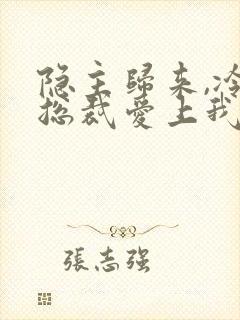 隐主歸来,冷
总裁爱上我
張志强